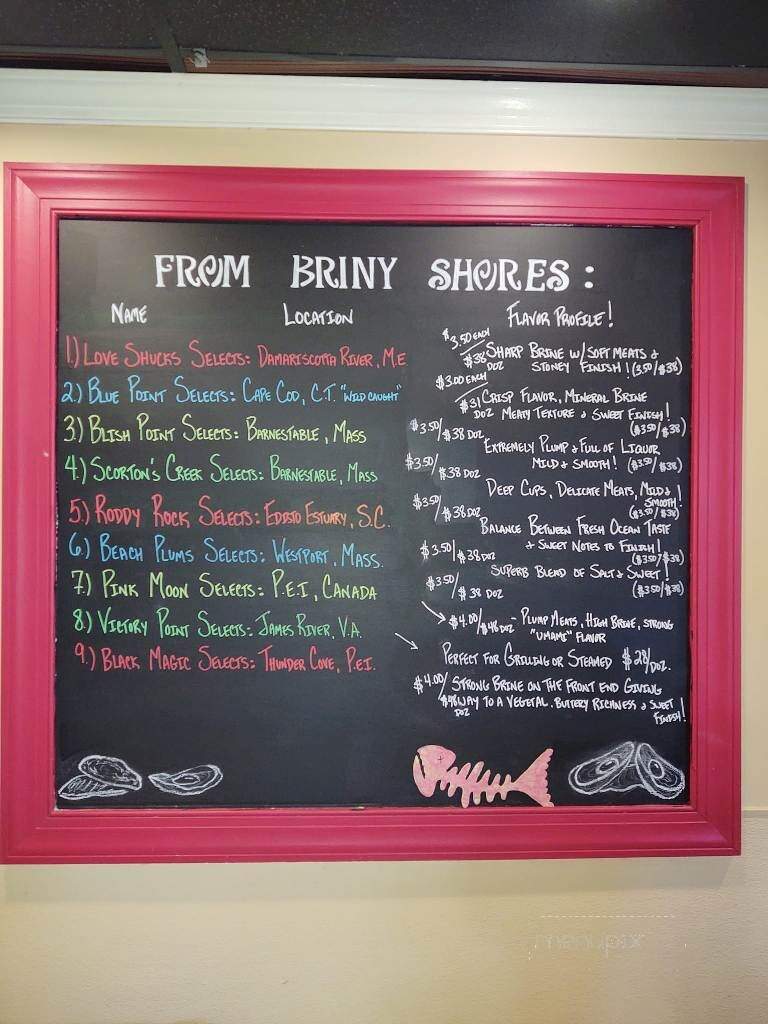 FROM BRINY SHORES:
NAME LOCATION FLAVOR PROFILE!
1.) LOVE SHUCKS SELECTS: DAMARISCOTTA RIVER, M.E.
2.) BLUE POINT SELECTS: CAPE COD, C.T. "WILD CAUGHT"
3.) BLISH POINT SELECTS: BARNESTABLE, MASS
4.) SCORTON'S CREEK SELECTS: BARNESTABLE, MASS
5.) RODDY ROCK SELECTS: EDISTO ESTUARY, S.C.
6.) BEACH PLUMS SELECTS: WESTPORT, MASS.
7.) PINK MOON SELECTS: P.E.I, CANADA
8.) VICTORY POINT SELECTS: JAMES RIVER, V.A.
9.) BLACK MAGIC SELECTS: THUNDER COVE, P.E.I.
$3.50 EACH
$38 DOZ
SHARP BRINE W/ SOFT MEATS &
STONEY FINISH! (3.50/$38)
$3.00 EACH
$31 DOZ
CRISP FLAVOR, MINERAL BRINE
MEATY TEXTURE & SWEET FINISH!
($3.50/$38)
$3.50/$38 DOZ
EXTREMELY PLUMP & FULL OF LIQUOR
MILD & SMOOTH! ($3.50/$38)
$3.50/$38 DOZ
DEEP CUPS, DELICATE MEATS, MILD &
SMOOTH!
($3.50/$38)
$3.50/$38 DOZ
BALANCE BETWEEN FRESH OCEAN TASTE
& SWEET NOTES TO FINISH!
($3.50/$38)
$3.50/$38 DOZ
SUPERB BLEND OF SALT & SWEET!
($3.50/$38)
$3.50/$38 DOZ
$4.00/$48 DOZ - PLUMP MEATS, HIGH BRINE, STRONG
"UMAMI" FLAVOR
PERFECT FOR GRILLING OR STEAMED $28/DOZ.
$4.00/$48 DOZ
STRONG BRINE ON THE FRONT END GIVING
WAY TO A VEGETAL, BUTTERY RICHNESS & SWEET
FINISH!
menupix